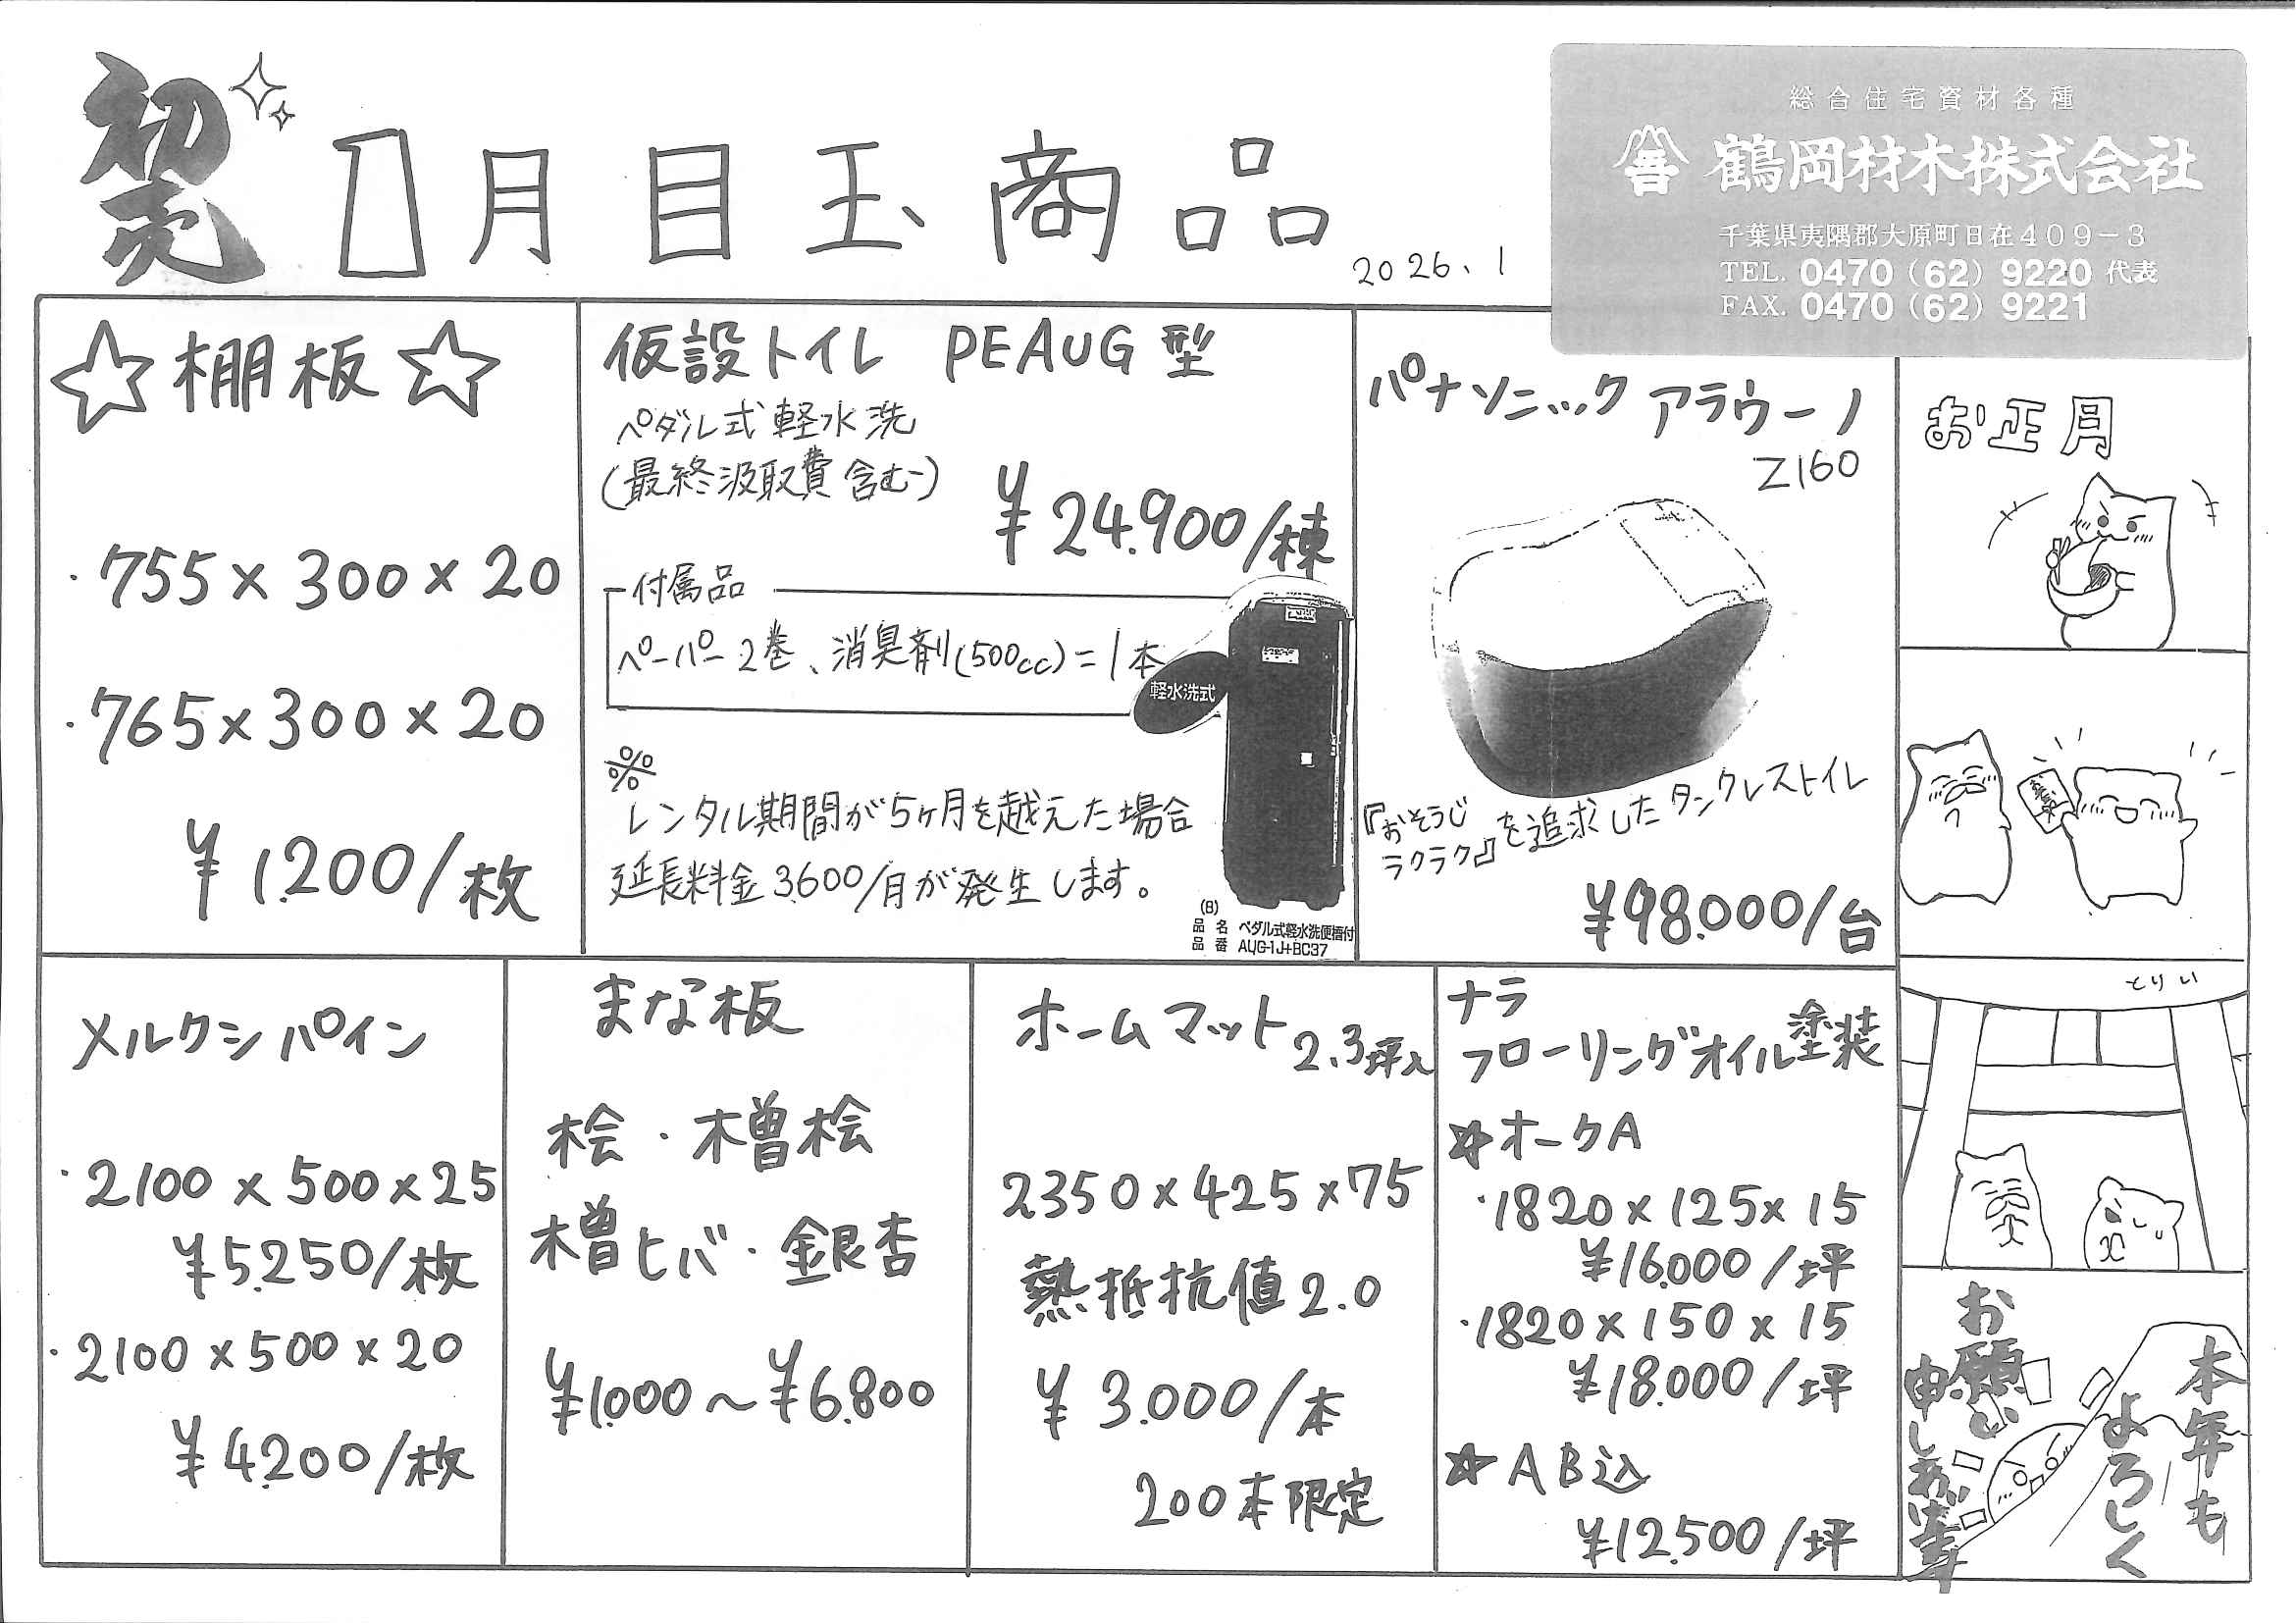 初売
1月目玉商品
2026.1
総合住宅資材各種
鶴岡材木株式会社
千葉県夷隅郡大原町日在409-3
TEL. 0470 (62) 9220 代表
FAX. 0470 (62) 9221
☆棚板☆
・755×300×20
・765×300×20
¥1.200/枚
仮設トイレ PEAUG型
ペダル式軽水洗
(最終汲取費含む)
¥24.900/棟
付属品
ペーパー2巻、消臭剤(500cc)=1本
軽水洗式
※
レンタル期間が5ヶ月を越えた場合
延長料金3.600/月が発生します。
(8)
品名 ペダル式軽水洗便槽付
品番 AUG-1J+BC37
パナソニック アラウーノ
Z160
『おそうじ
ラクラク』を追求したタンクレストイレ
¥98.000/台
お正月
メルクシパイン
・2100×500×25
¥5.250/枚
・2100×500×20
¥4.200/枚
まな板
桧・木曽桧
木曽ヒバ・銀杏
¥1.000~¥6.800
ホームマット2.3坪入
2350×425×75
熱抵抗値2.0
¥3.000/本
200本限定
ナラ
フローリングオイル塗装
☆オークA
・1820×125×15
¥16.000/坪
・1820×150×15
¥18.000/坪
☆AB込
¥12.500/坪
とりい
本年も
よろしく
お願い
申しあげます